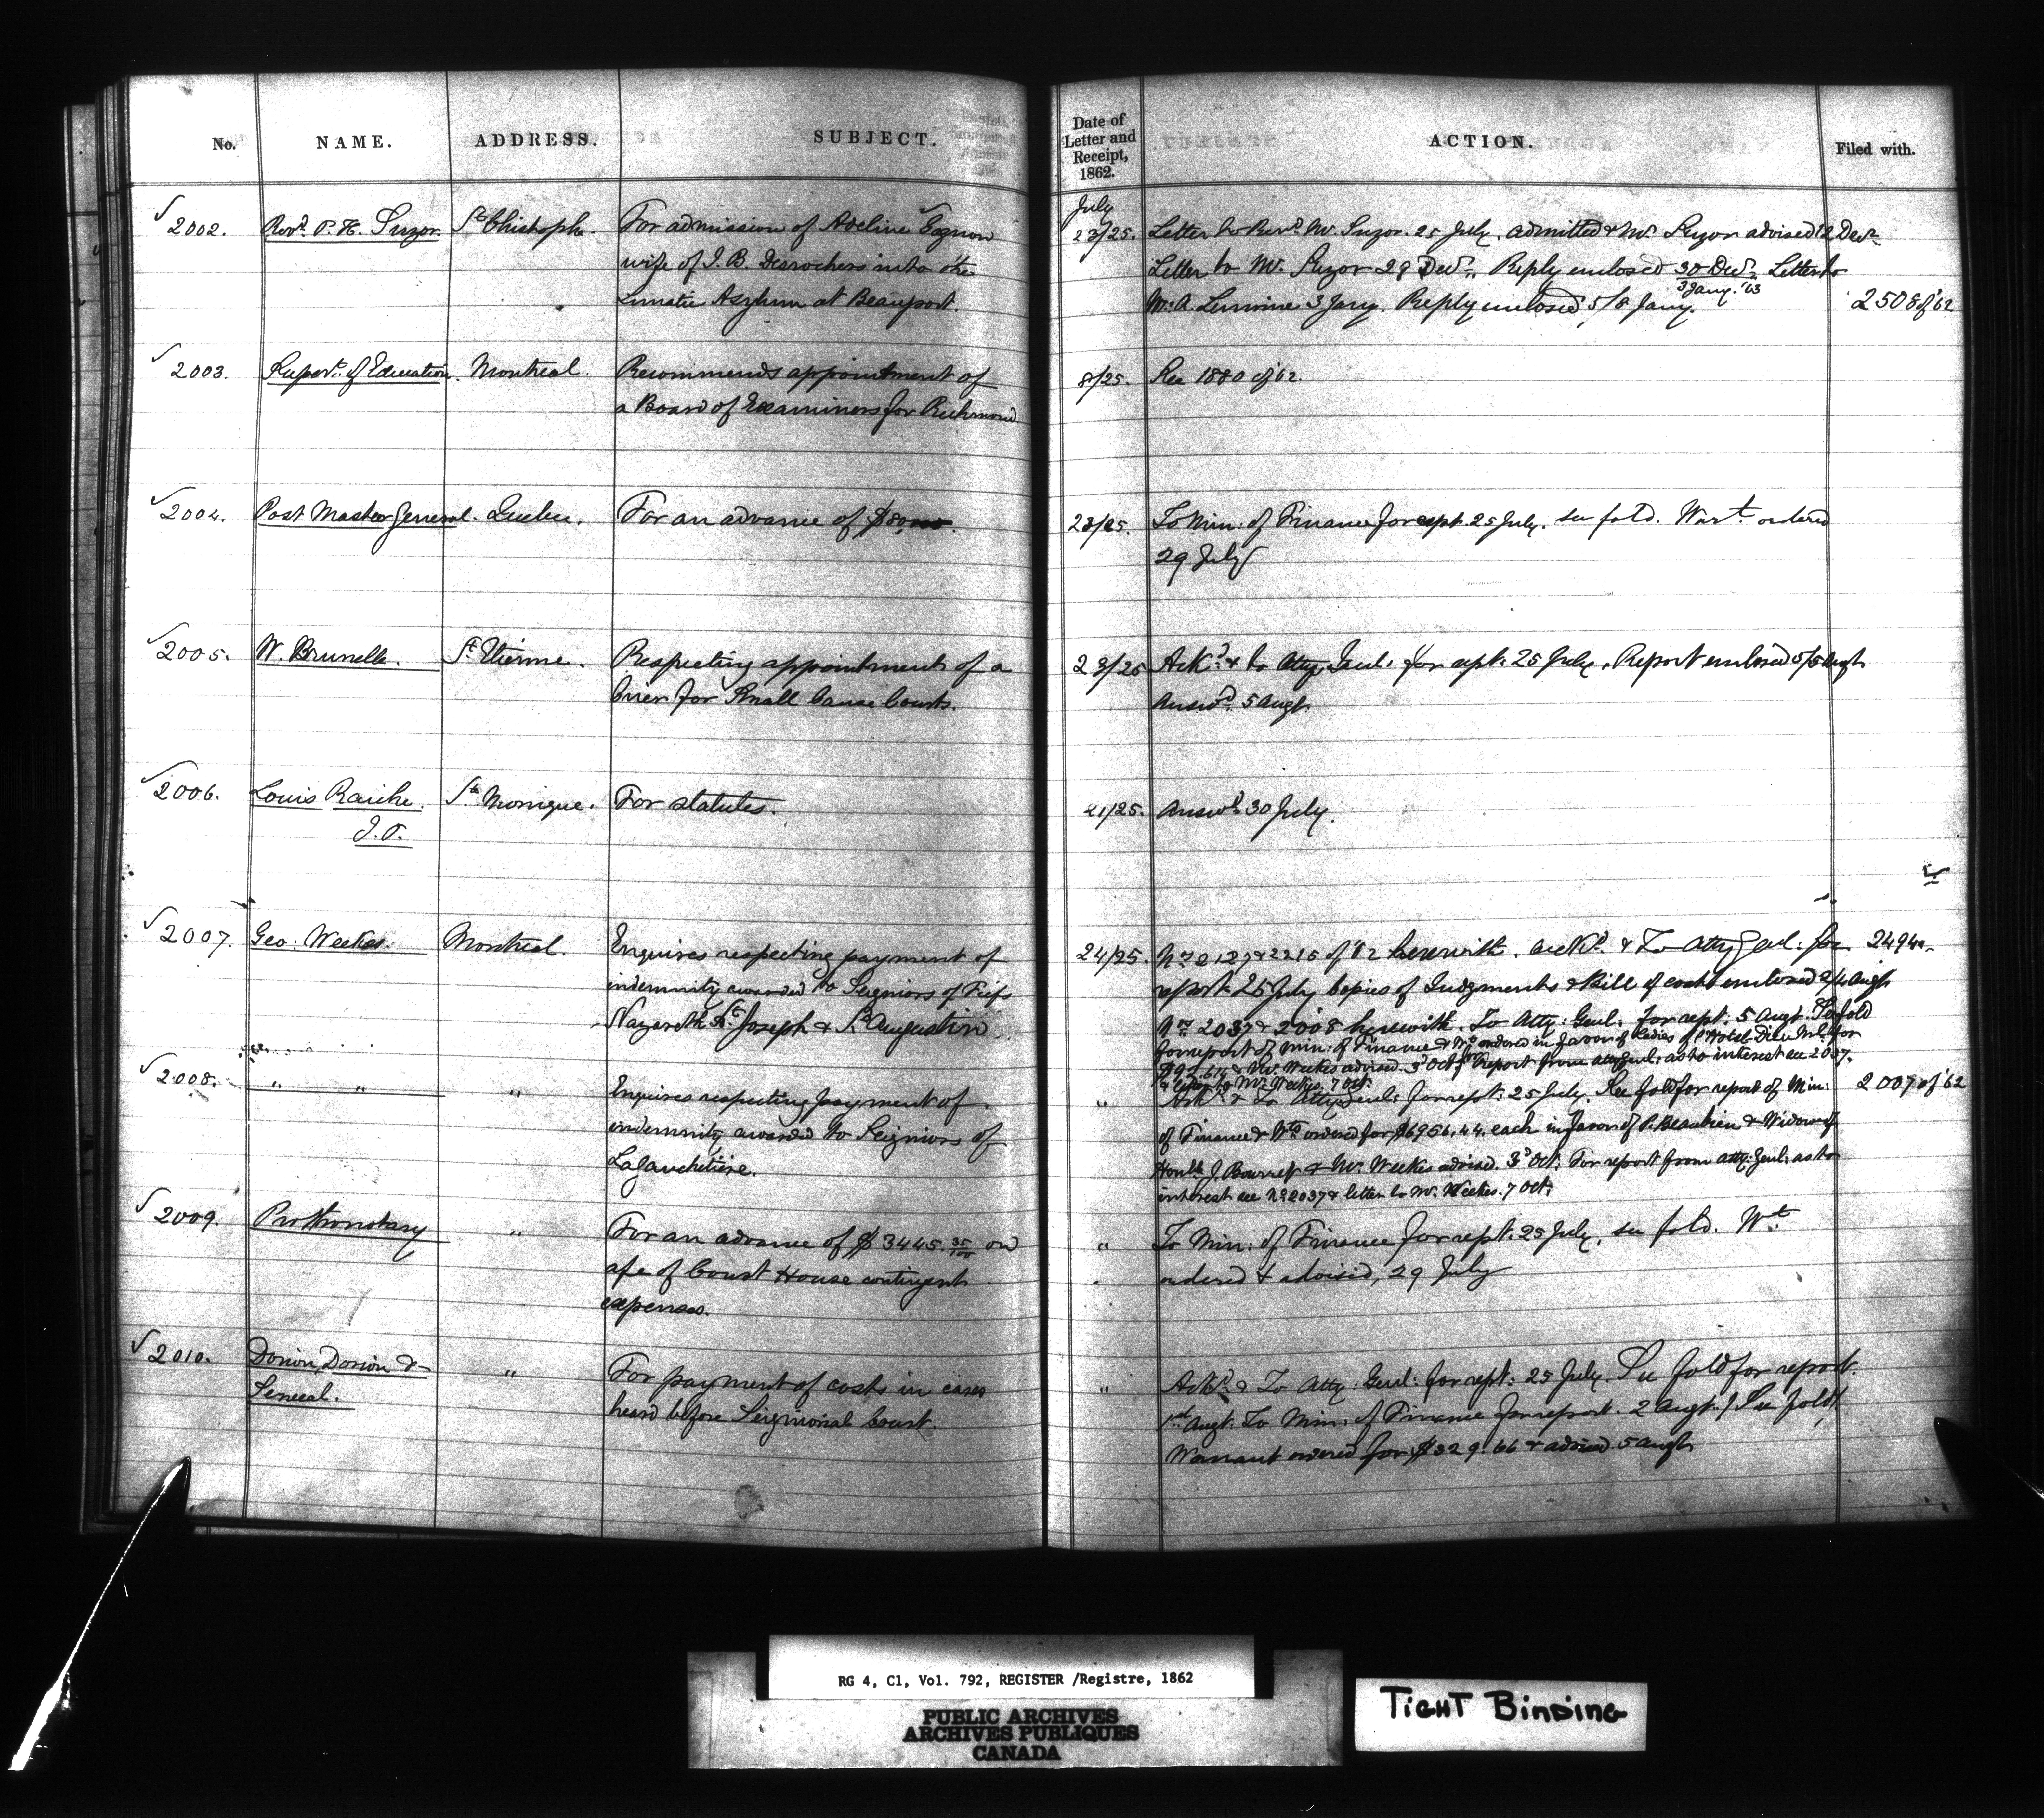 No. NAME. ADDRESS. SUBJECT. Date of Letter and Receipt, 1862. ACTION. Filed with.
July
√ 2002. Revd. P. H. Suzor St. Christophe. For admission of Adeline Gagnon 23/25. Letter to Revd. Mr. Suzor 25 July. admitted & Mr. Suzor advised 12 Decr.
wife of J. B. Desrochers into the Letter to Mr. Suzor 29 Decr. Reply enclosed 30 Decr. Letter to
3 Jany. '63
Lunatic Asylum at Beauport. W. A. 3 Jany. Reply enclosed 5/8 Jany. 2508 of '62
√ 2003. Supert. of Education. Montreal. Recommends appointment of 8/25. See 1880 of '62.
a Board of Examiners for Richmond
√ 2004. Post Master General. Quebec. For an advance of 23/25. To Min: of Finance for rept. 25 July. see fold. Wart. ordered
29 July
√ 2005. W. Brunelle. St. Etienne. Respecting appointment of a 23/25 Ackd. & to Atty. Genl: for rept: 25 July. Report enclosed 5/5 Augt.
Crier for Small Cause Courts. Answd. 5 Augt.
√ 2006. Louis Raiche. Ste Monique. For statutes. 21/25. Answd. 30 July.
J.P.
√ 2007. Geo: Weekes. Montreal. Enquires respecting payment of 24/25. Nos. 2127 & 2215 of '62 herewith. Ackd. & To Atty Genl: for 2494
indemnity awarded to Seigniors of Fiefs report 25 July Copies of Judgments & Bill of costs enclosed 2/4 Augt.
Nazareth St. Joseph & St. Augustin Nos. 2037 & 2008 herewith. To Atty: Genl: for rept: 5 Augt. See fold
for report of Min: of Finance & Wt. ordered in favor of Ladies of Hotel Dieu Ml. for
& Mr. Weekes advised. 3d Oct. For report from Atty Genl: as to interest see 2037.
& letter to Mr. Weekes. 7 Oct.
√ 2008. " " " Enquires respecting payment of " Ackd. & To Atty Genl: for rept: 25 July. See fold for report of Min: 2007 of '62
indemnity awarded to Seigniors of of Finance & Wts ordered for $6956.44. each in favor of P. Beaubien & Widow of
Lagauchetière. Honble. J. Bourret & Mr. Weekes advised. 3d Oct. For report from Atty: Genl: as to
interest see No. 2037 & letter to Mr. Weekes. 7 Oct.
√ 2009. Prothonotary " For an advance of $3445.35/100 on " To Min: of Finance for rept: 25 July. see fold. Wt.
a/c of Court House contingent ordered & advised, 29 July
expenses.
√ 2010. Dorion, Dorion & " For payment of costs in cases " Ackd. & To Atty: Genl: for rept: 25 July. See fold for report.
Senecal. heard before Seigniorial Court. 1st Augt. To Min: of Finance for report. 2 Augt. (See fold)
Warrant ordered for $329.66 & advised 5 Augt.
RG 4, C1, Vol. 792, REGISTER /Registre, 1862
PUBLIC ARCHIVES
ARCHIVES PUBLIQUES
CANADA
TIGHT BINDING